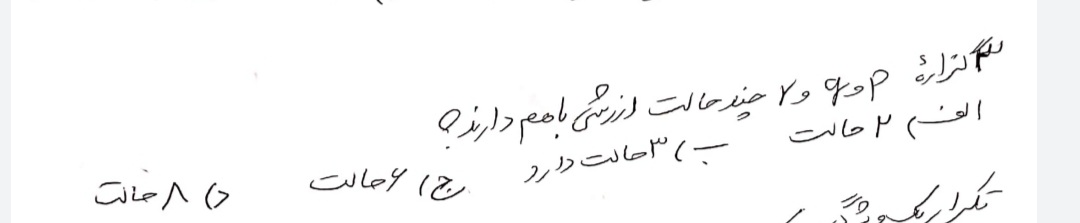 ۳ گزارهٔ p و q و r چند حالت ارزشی باهم دارند؟
الف) ۲ حالت ب) ۳ حالت دارد ج) ۶ حالت د) ۸ حالت
تکرار یک